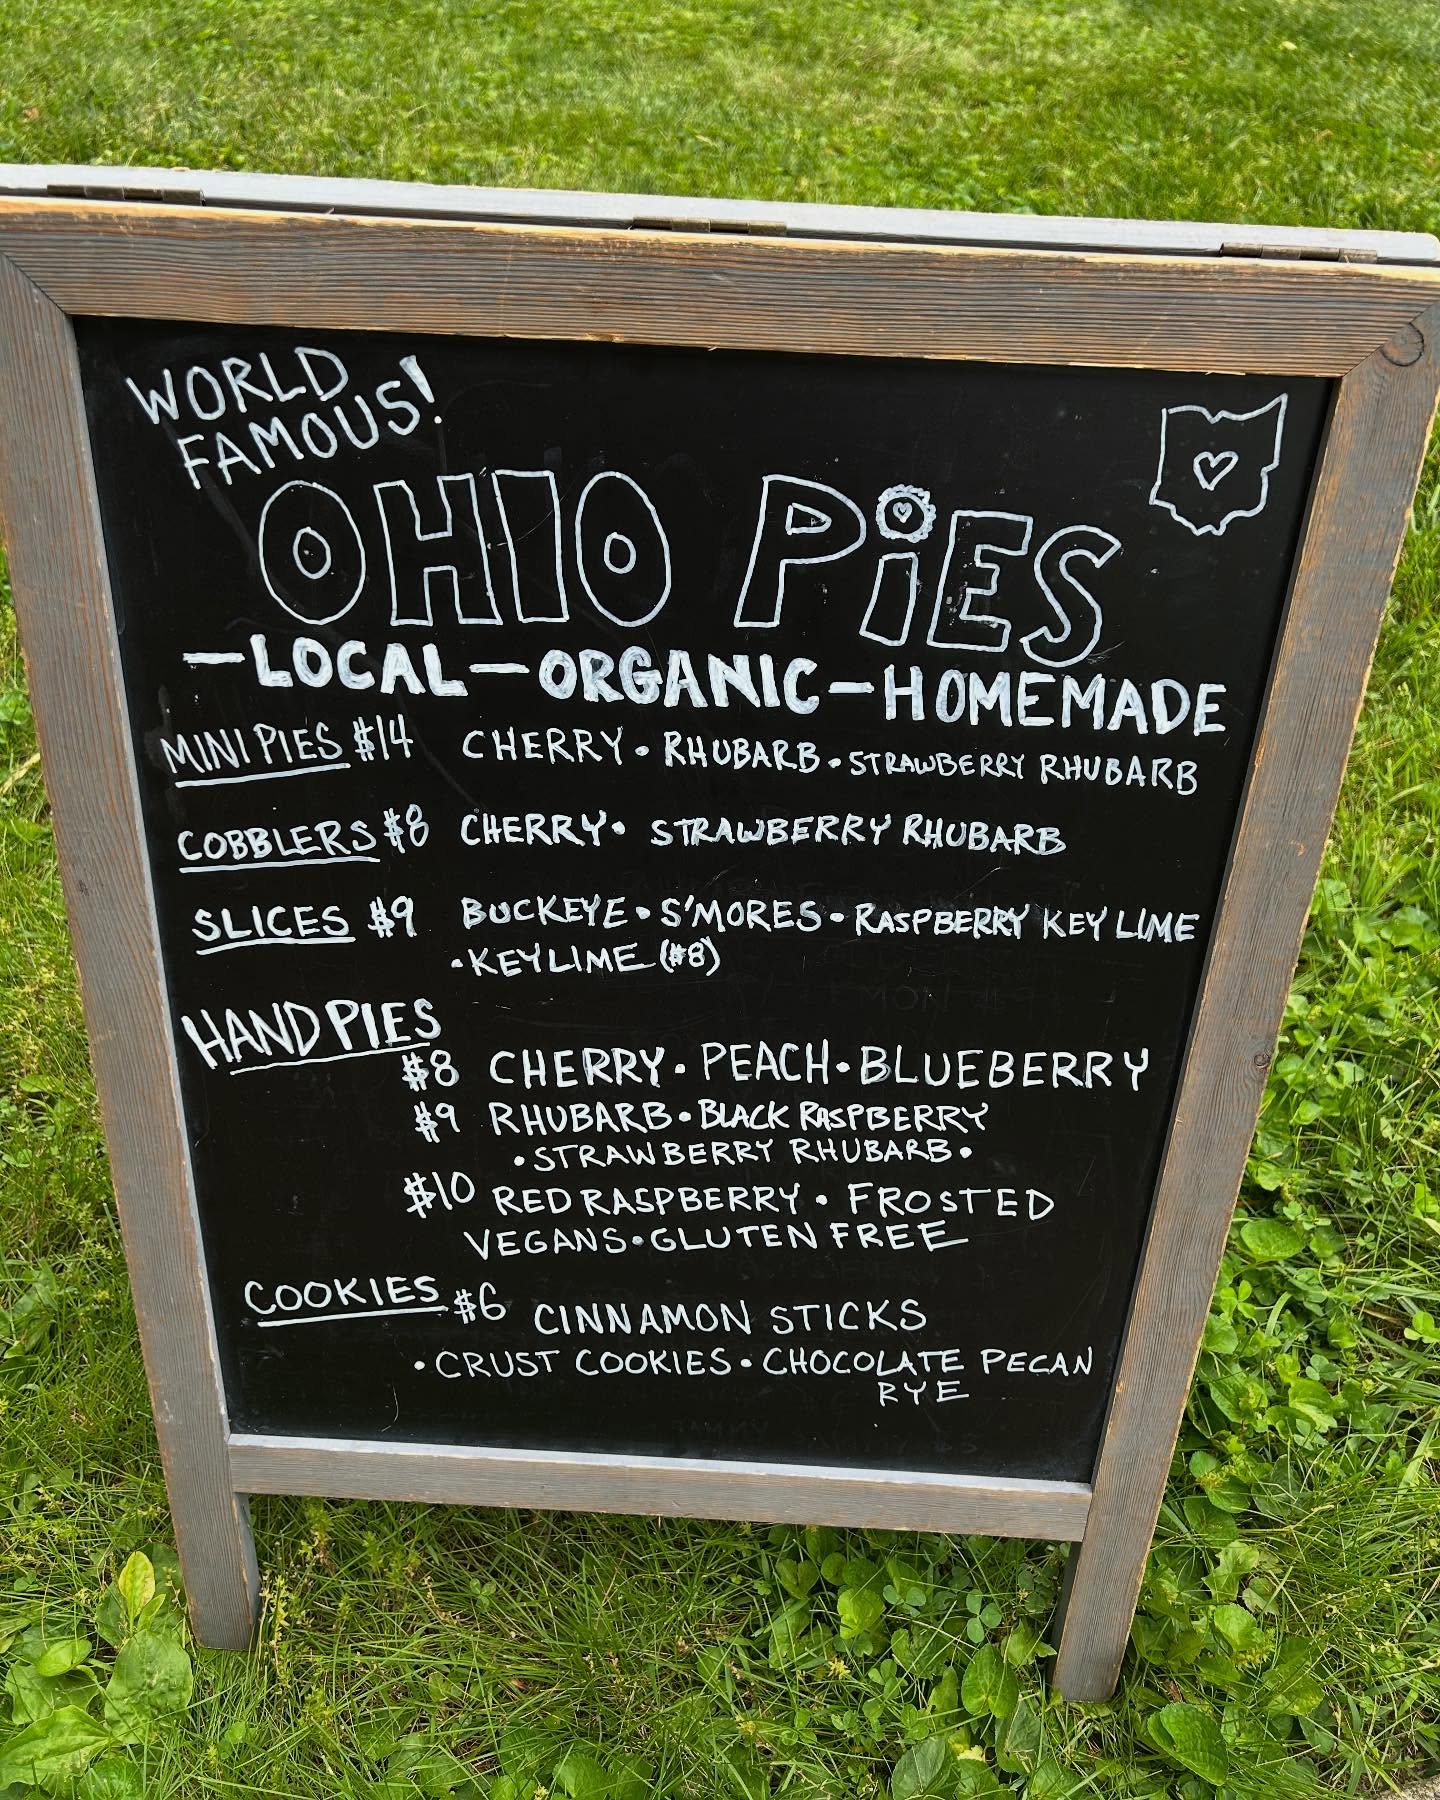 WORLD
FAMOUS!
OHIO PiES
—LOCAL—ORGANIC—HOMEMADE
MINI PIES $14 CHERRY • RHUBARB • STRAWBERRY RHUBARB
COBBLERS $8 CHERRY • STRAWBERRY RHUBARB
SLICES $9 BUCKEYE • S'MORES • RASPBERRY KEY LIME
• KEYLIME ($8)
HAND PIES
$8 CHERRY • PEACH • BLUEBERRY
$9 RHUBARB • BLACK RASPBERRY
• STRAWBERRY RHUBARB •
$10 RED RASPBERRY • FROSTED
VEGANS • GLUTEN FREE
COOKIES $6 CINNAMON STICKS
• CRUST COOKIES • CHOCOLATE PECAN
RYE